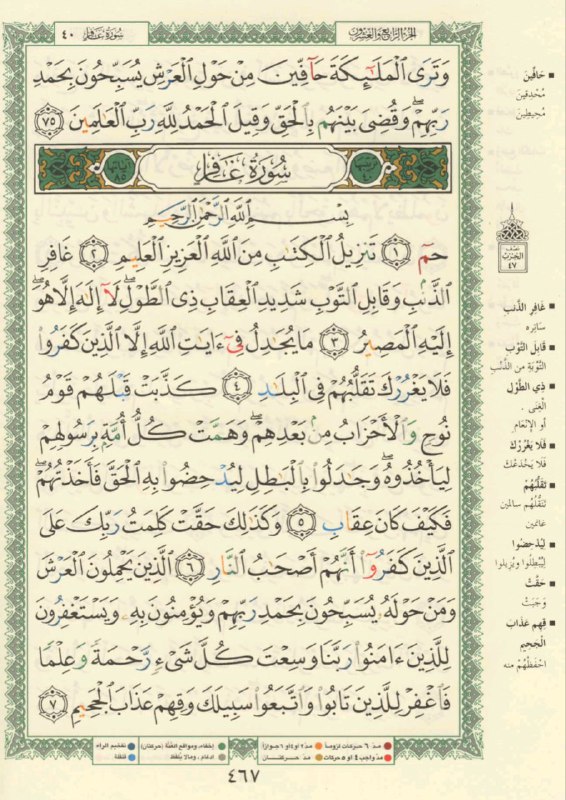 سُورَةُ غَافِر ٤٠
الجُزءُ الرَّابِعُ وَالعِشْرُون
وَتَرَى ٱلْمَلَٰٓئِكَةَ حَآفِّينَ مِنْ حَوْلِ ٱلْعَرْشِ يُسَبِّحُونَ بِحَمْدِ
رَبِّهِمْ ۖ وَقُضِىَ بَيْنَهُم بِٱلْحَقِّ وَقِيلَ ٱلْحَمْدُ لِلَّهِ رَبِّ ٱلْعَٰلَمِينَ ٧٥
سُورَةُ غَافِر
بِسْمِ ٱللَّهِ ٱلرَّحْمَٰنِ ٱلرَّحِيمِ
حمٓ ١ تَنزِيلُ ٱلْكِتَٰبِ مِنَ ٱللَّهِ ٱلْعَزِيزِ ٱلْعَلِيمِ ٢ غَافِرِ
ٱلذَّنۢبِ وَقَابِلِ ٱلتَّوْبِ شَدِيدِ ٱلْعِقَابِ ذِى ٱلطَّوْلِ ۖ لَآ إِلَٰهَ إِلَّا هُوَ ۖ
إِلَيْهِ ٱلْمَصِيرُ ٣ مَا يُجَٰدِلُ فِىٓ ءَايَٰتِ ٱللَّهِ إِلَّا ٱلَّذِينَ كَفَرُوا۟
فَلَا يَغْرُرْكَ تَقَلُّبُهُمْ فِى ٱلْبِلَٰدِ ٤ كَذَّبَتْ قَبْلَهُمْ قَوْمُ
نُوحٍ وَٱلْأَحْزَابُ مِنۢ بَعْدِهِمْ ۖ وَهَمَّتْ كُلُّ أُمَّةٍۭ بِرَسُولِهِمْ
لِيَأْخُذُوهُ ۖ وَجَٰدَلُوا۟ بِٱلْبَٰطِلِ لِيُدْحِضُوا۟ بِهِ ٱلْحَقَّ فَأَخَذْتُهُمْ ۖ
فَكَيْفَ كَانَ عِقَابِ ٥ وَكَذَٰلِكَ حَقَّتْ كَلِمَتُ رَبِّكَ عَلَى
ٱلَّذِينَ كَفَرُوٓا۟ أَنَّهُمْ أَصْحَٰبُ ٱلنَّارِ ٦ ٱلَّذِينَ يَحْمِلُونَ ٱلْعَرْشَ
وَمَنْ حَوْلَهُۥ يُسَبِّحُونَ بِحَمْدِ رَبِّهِمْ وَيُؤْمِنُونَ بِهِۦ وَيَسْتَغْفِرُونَ
لِلَّذِينَ ءَامَنُوا۟ رَبَّنَا وَسِعْتَ كُلَّ شَىْءٍ رَّحْمَةً وَعِلْمًا
فَٱغْفِرْ لِلَّذِينَ تَابُوا۟ وَٱتَّبَعُوا۟ سَبِيلَكَ وَقِهِمْ عَذَابَ ٱلْجَحِيمِ ٧
حَافِّينَ
مُحْدِقِينَ
مُحِيطِينَ
نصف
الحزب
٤٧
غَافِرِ الذَّنبِ
سَاتِرِه
قَابِلِ التَّوْبِ
التَّوْبَةِ مِن الذَّنْبِ
ذِي الطَّوْلِ
الْغِنَى .
أو الإنْعَامِ
فَلَا يَغْرُرْكَ
فَلَا يَخْدَعُكَ
تَقَلُّبُهُمْ
تَنَقُّلُهُم سالِمين
غانِمين
لِيُدْحِضُوا
لِيُبْطِلُوا ويُزيلوا
حَقَّتْ
وَجَبَتْ
قِهِم عَذابَ
الجَحيمِ
احْفَظْهُمْ منه
مدّ ٦ حركات لزوماً مدّ ٢ أو ٤ أو ٦ جوازاً إخفاء، ومواقع الغُنَّة (حركتان) تفخيم الراء
مدّ واجب ٤ أو ٥ حركات مدّ حركتـــان إدغام ، ومالا يُلفظ قلقلة
٤٦٧